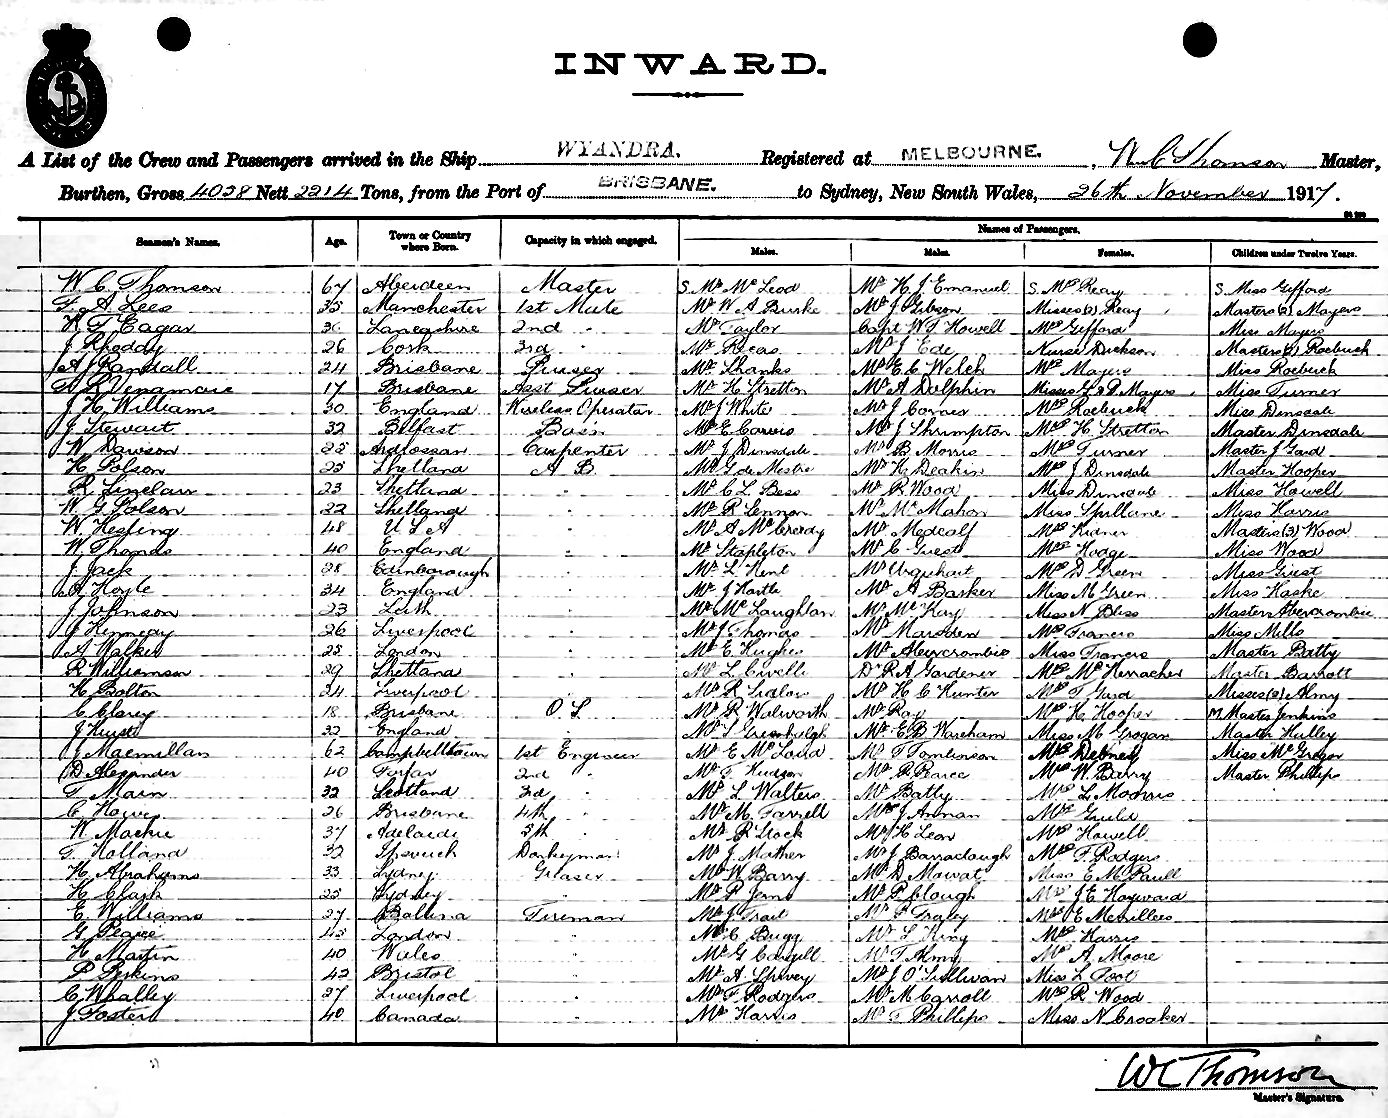 INWARD.
A List of the Crew and Passengers arrived in the Ship WYANDRA. Registered at MELBOURNE. , W C Thomson Master,
Burthen, Gross 4028 Nett 2214 Tons, from the Port of BRISBANE. to Sydney, New South Wales, 26th November 1917.
Names of Passengers.
Seamen's Names. Age. Town or Country where Born. Capacity in which engaged. Males. Males. Females. Children under Twelve Years.
W C Thomson 67 Aberdeen Master S. Mr McLeod Mr H J Emanuel S. Mrs Reay S. Miss Gefford
F A Lees 35 Manchester 1st Mate Mr W A Burke Mr J Gibson Misses (2) Reay Masters (2) Mayers
H T Eagar 30 Lancashire 2nd " Mr Taylor Capt W T Howell Mrs Gefford Miss Mayers
J Rhoday 26 Cork 3rd " Mr Reas Mr J Ede Nurse Dickson Masters (2) Roebuck
A J Randall 24 Brisbane Purser Mr Shanks Mr E C Welch Mrs Mayers Miss Roebuck
17 Brisbane Asst Purser Mr H Stretton Mr A Dolphin Misses G & P Mayers Miss Turner
J H Williams 30 England Wireless Operator Mr J White Mr J Corner Mrs Roebuck Miss Dinsdale
J Stewart 32 Belfast Bos'n Mr E Corvis Mr J Shrumpton Mrs H Stretton Master Dinsdale
W Dawson 25 Ardrossan Carpenter Mr J Dinsdale Mr B Morris Mrs Turner Master J Gard
H Polson 25 Shetland A B Mr G de Mestre Mr H Deakin Mrs J Dinsdale Master Hooper
R Sinclair 23 Shetland " Mr C L Bess Mr R Wood Miss Dinsdale Miss Howell
W G Polson 22 Shetland " Mr R Lennon Mr McMahon Miss Spillane Miss Harris
W Hesling 48 U S A " Mr A McCredy Mr Medcalf Mrs Kidner Masters (3) Wood
W Thomas 40 England " Mr Stapleton Mr C Guest Mrs Hodge Miss Wood
J Jack 28 Edinborough " Mr L Kent Mr Urquhart Mrs D Green Miss Guest
Hoyle 34 England " Mr J Hartle Mr A Barker Miss M Green Miss Kaske
J Johnson 23 Leith " Mr McLaughlan Mr McKay Miss N Bliss Master Abercrombie
J Kennedy 26 Liverpool " Mr J Thomas Mr Marsden Mrs Francis Miss Mills
A Walker 25 London " Mr E Hughes Mr Abercrombie Miss Francis Master Batty
R Williamson 29 Shetland " Mr L Civelli Dr R A Gardener Mrs McKerracher Master Barrott
H Bolton 24 Liverpool " Mr R Sidlow Mr H C Hunter Mrs F Gard Misses (2) Almy
C Clarey 18 Brisbane O S Mr R Walworth Mr Ray Mrs H Hooper Master Jenkins
J Hurst 32 England " Mr S Greenhalgh Mr E B Wareham Miss M Grogan Master Hulley
J Macmillan 62 Campbelltown 1st Engineer Mr E McLeod Mr F Tomlinson Mrs Debney Miss McGregor
D Alexander 40 Forfar 2nd " Mr F Hudson Mr R Pearce Mrs W Barry Master Phillips
T Mann 32 Scotland 3rd " Mr L Walters Mr Batty Mrs L Morris
C Howie 26 Brisbane 4th " Mr M Farrell Mr J Annan Mrs Guild
W Mackie 37 Adelaide 5th " Mr R Stock Mr H Leon Mrs Howell
F Holland 32 Ipswich Donkeyman Mr J Mather Mr J Barraclough Mrs F Rodgers
H Abrahams 33 Sydney Greaser Mr W Barry Mr D Mowat Miss E McPaull
H Clark 25 Sydney " Mr R Jens Mr P Clough Mrs J E Hayward
E Williams 27 Ballina Fireman Mr J Trail Mr P Fraley Mrs E Merrillees
G Pearce 43 London " Mr C Bugg Mr S King Mrs Harris
H Martin 40 Wales " Mr G Cargill Mr F Almy Mrs A Moore
P Perkins 42 Bristol " Mr A Spivey Mr J O'Sullivan Miss L Foot
C Whalley 27 Liverpool " Mr F Rodgers Mr M Carroll Mrs R Wood
J Foster 40 Canada " Mr Harris Mr F Phillips Miss N Croaker
W C Thomson
Master's Signature.